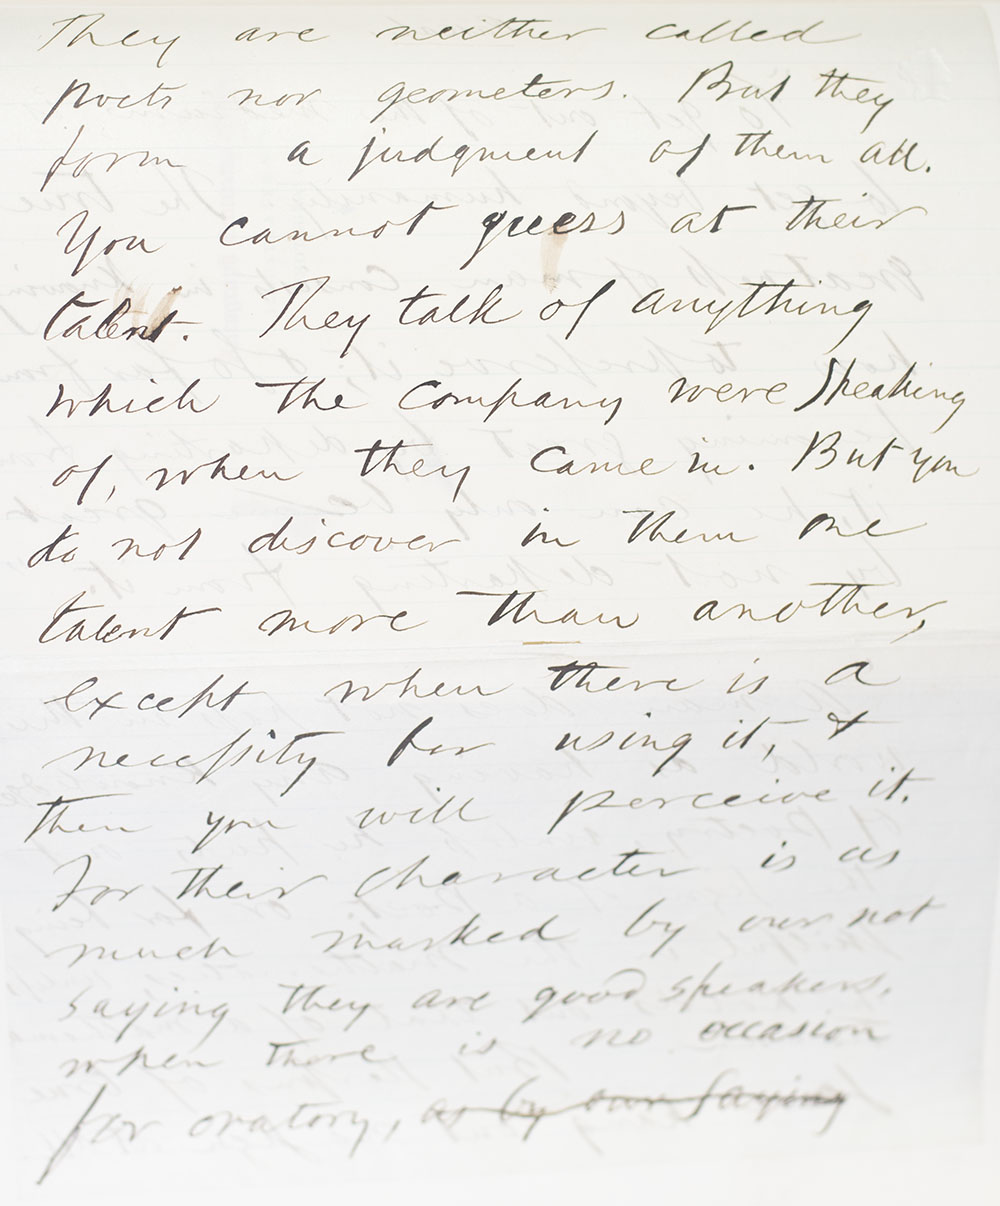 They are neither called
poets nor geometers. But they
form a judgment of them all.
You cannot guess at their
talent. They talk of anything
which the company were speaking
of, when they came in. But you
do not discover in them one
talent more than another,
except when there is a
necessity for using it, &
then you will perceive it.
For their character is as
much marked by our not
saying they are good speakers,
when there is no occasion
for oratory, as by our saying